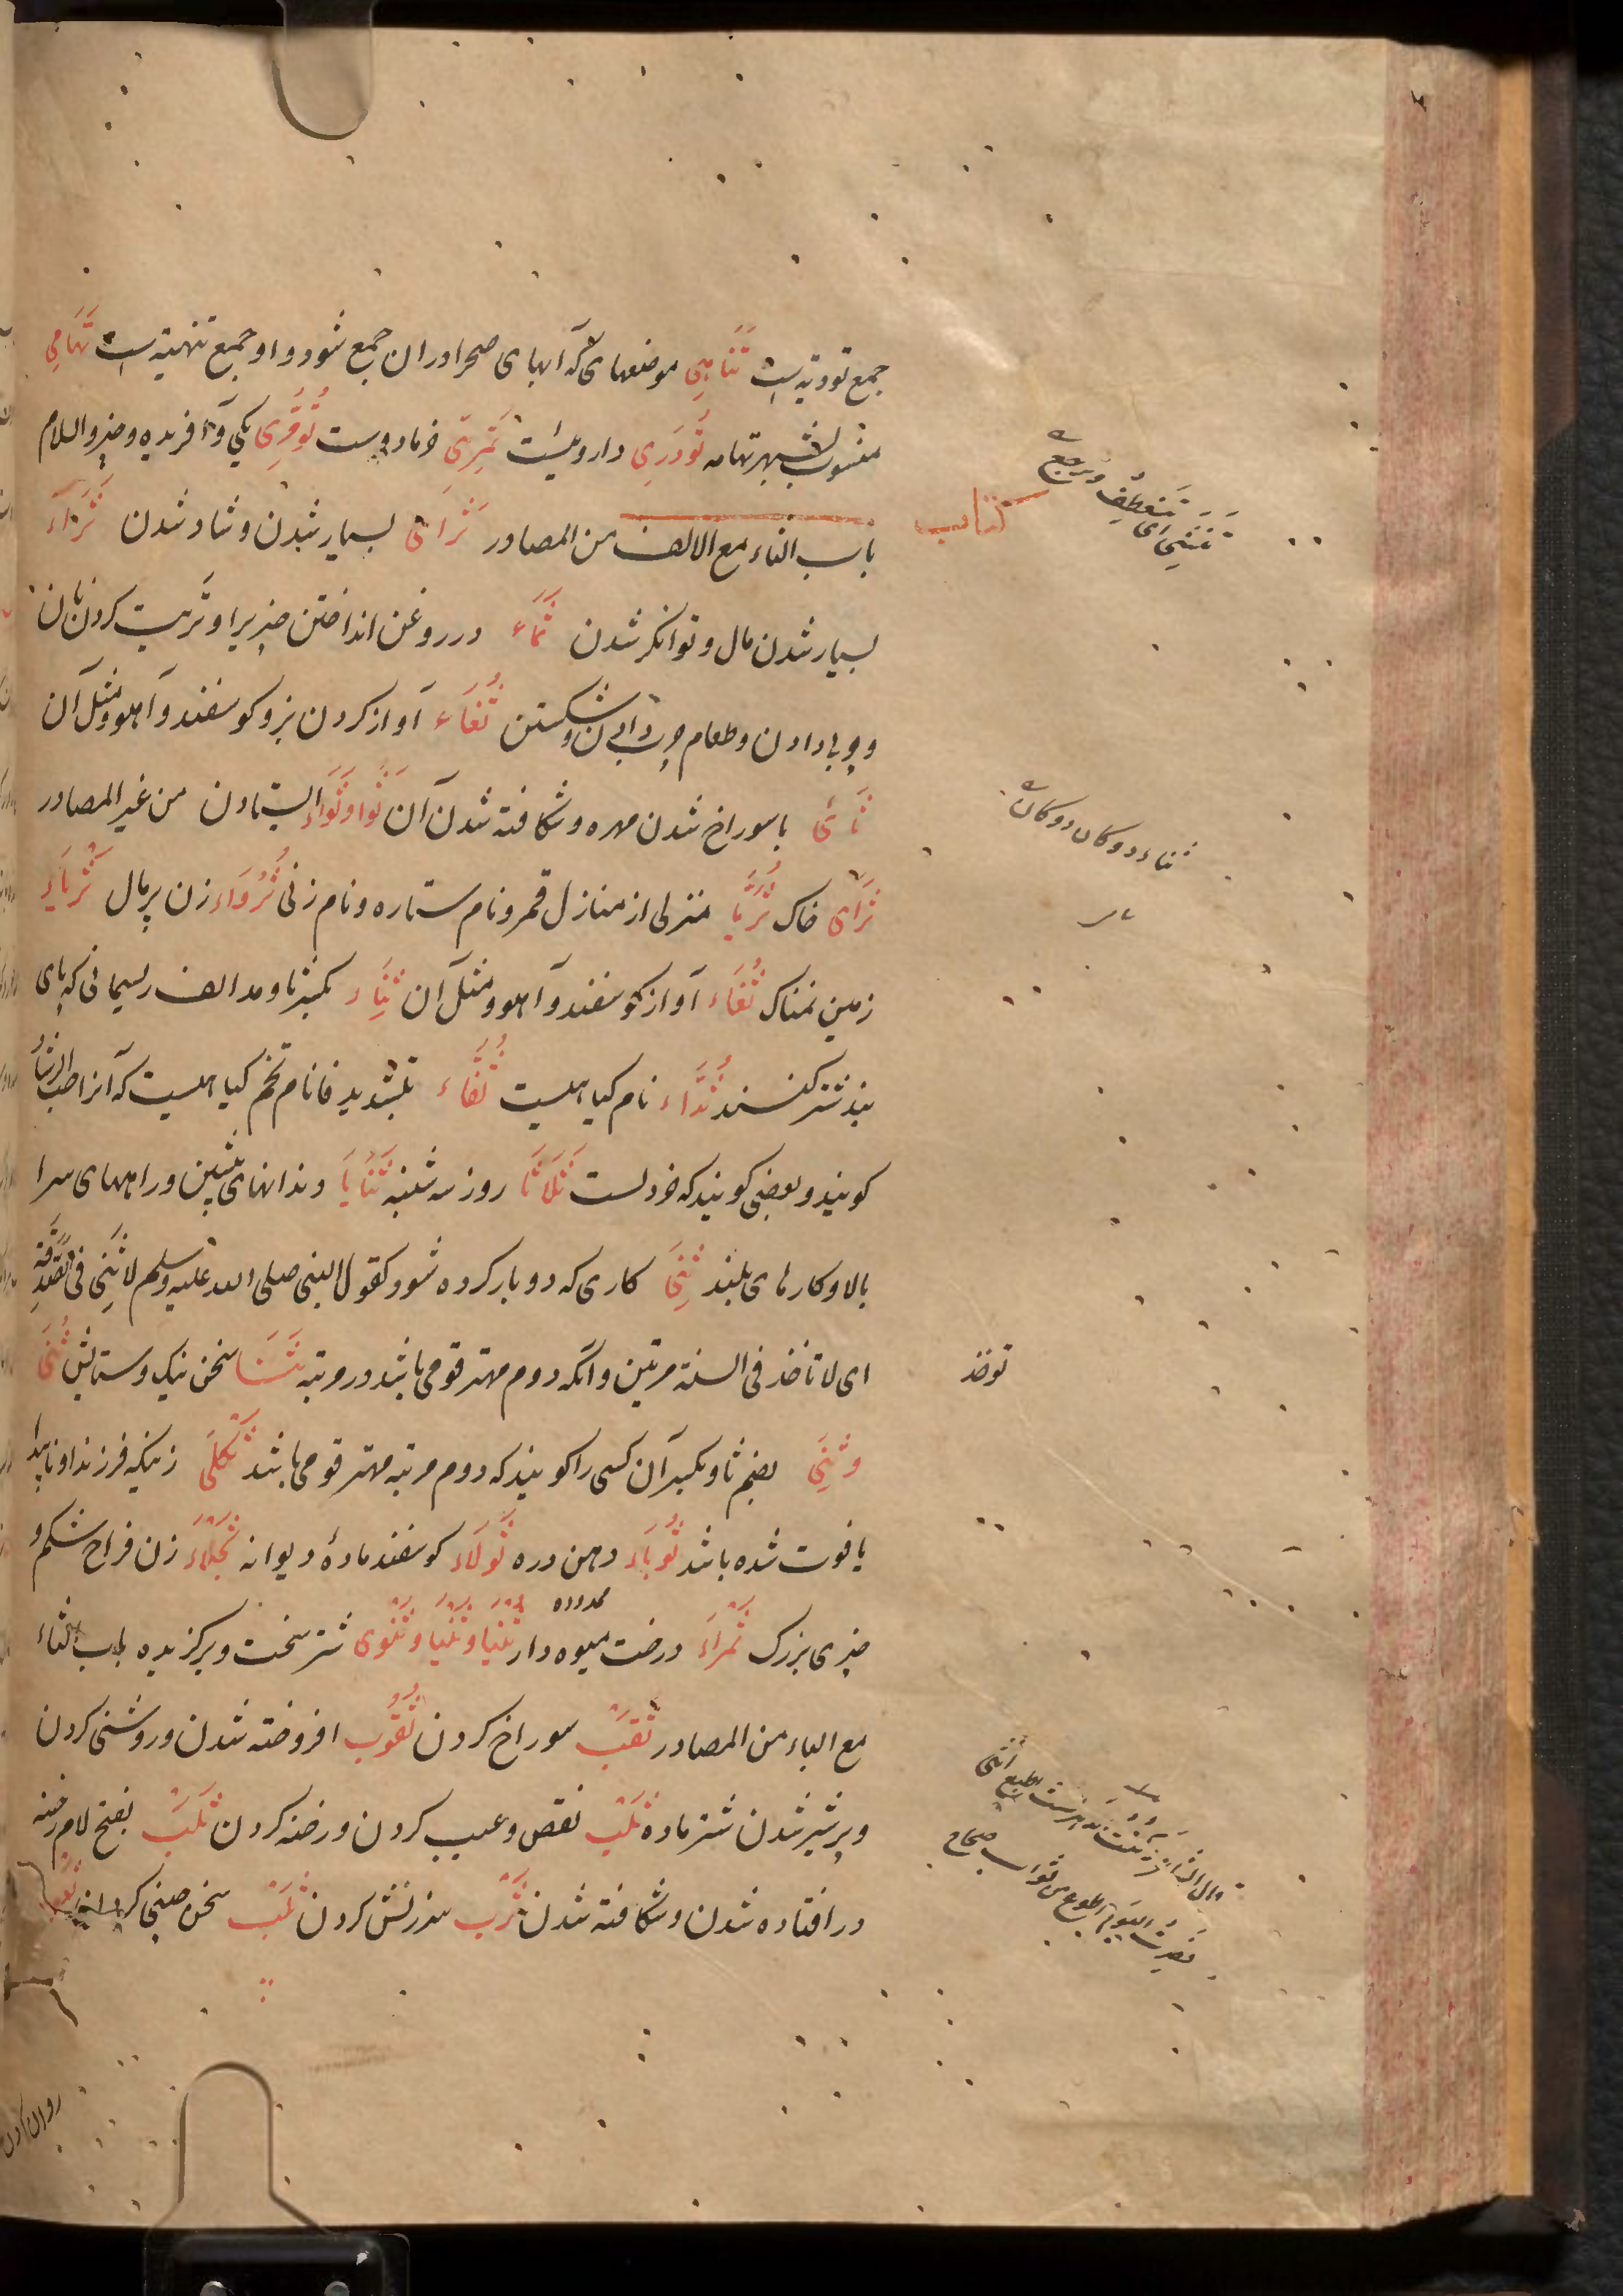 جمع تودیه است تَنَاهِی موضعهای که آبهای صحرا در ان جمع شود و او جمع تنهیته است تَهَامِی
منسوب بشهر تهامه تُودَرِی داروئیست تَمرِیّ خرما دوست تُوقَرِی یکی و آفریده و چیز و السلام
کتاب
باب الثاء مع الالف من المصادر ثَرَاىٌ بسیار شدن و شاد شدن ثَرَاءٌ
بسیار شدن مال و توانکر شدن ثَمَاء در روغن انداختن چیزیرا و تربیت کردن نان
و چربی دادن و طعام چرب دادن و شکستن ثُغَاء آواز کردن بز و کوسفند و آهو و مثل آن
ثَأىٌ با سوراخ شدن مهره و شکافته شدن آن ثَوًا و ثَوَاء ایستادن من غیر المصادر
ثَرَاى خاک ثُرَیَّا منزلی از منازل قمر و نام ستاره و نام زنی ثَرْوَاء زن پر مال ثَرْیَاء
زمین نمناک ثُغَاء آواز کوسفند و آهو و مثل آن ثِنَاء بکسر ثا و مد الف ریسمانی که پای
بند شتر کنند ثُدَّاء نام کیاهیست ثُفَّاء بتشدید فا نام تخم کیاهیست که آنرا حب الرشاد
کویند و بعضی کویند که خردلست ثَلَاثَا روز سه شنبه ثَنَایَا دندانهای پیشین و راههای سرا
بالا و کارهای بلند ثِنَی کاری که دو بار کرده شود کقول النبی صلی الله علیه وسلم لا ثِنَی فی الصَّدَقَة
ای لا تاخذ فی السنة مرتین و آنکه دوم مهتر قومی باشد در مرتبه ثَنَا سخن نیک و ستایش ثُنَی
توخذ
و ثِنَی بضم ثا و بکسر آن کسی را کویند که دوم مرتبه مهتر قومی باشد ثَکْلَی زنیکه فرزند او ناپیدا
یا فوت شده باشد ثُوَبَاء دهن دره ثَولَاء کوسفند مادهٔ دیوانه ثَجْلَاء زن فراخ شکم و
ممدوده
چیزی بزرک ثَمْرَاء درخت میوه دار ثِنْیَا و ثُنْیَا و ثَنْوَی شتر سخت و برکزیده باب الثاء
مع الباء من المصادر ثَقبٌ سوراخ کردن ثُقُوب افروخته شدن و روشنی کردن
و پر شیر شدن شتر ماده ثَلْبٌ نقص و عیب کردن و رخنه کردن ثَلَبٌ بفتح لام رخنه
در افتاده شدن و شکافته شدن ثَرْب سرزنش کردن ثَلْب سخن چینی کردن
تنثنی ای تنعطف و ترجع
ثناء دوکان دوکان
روان کردن